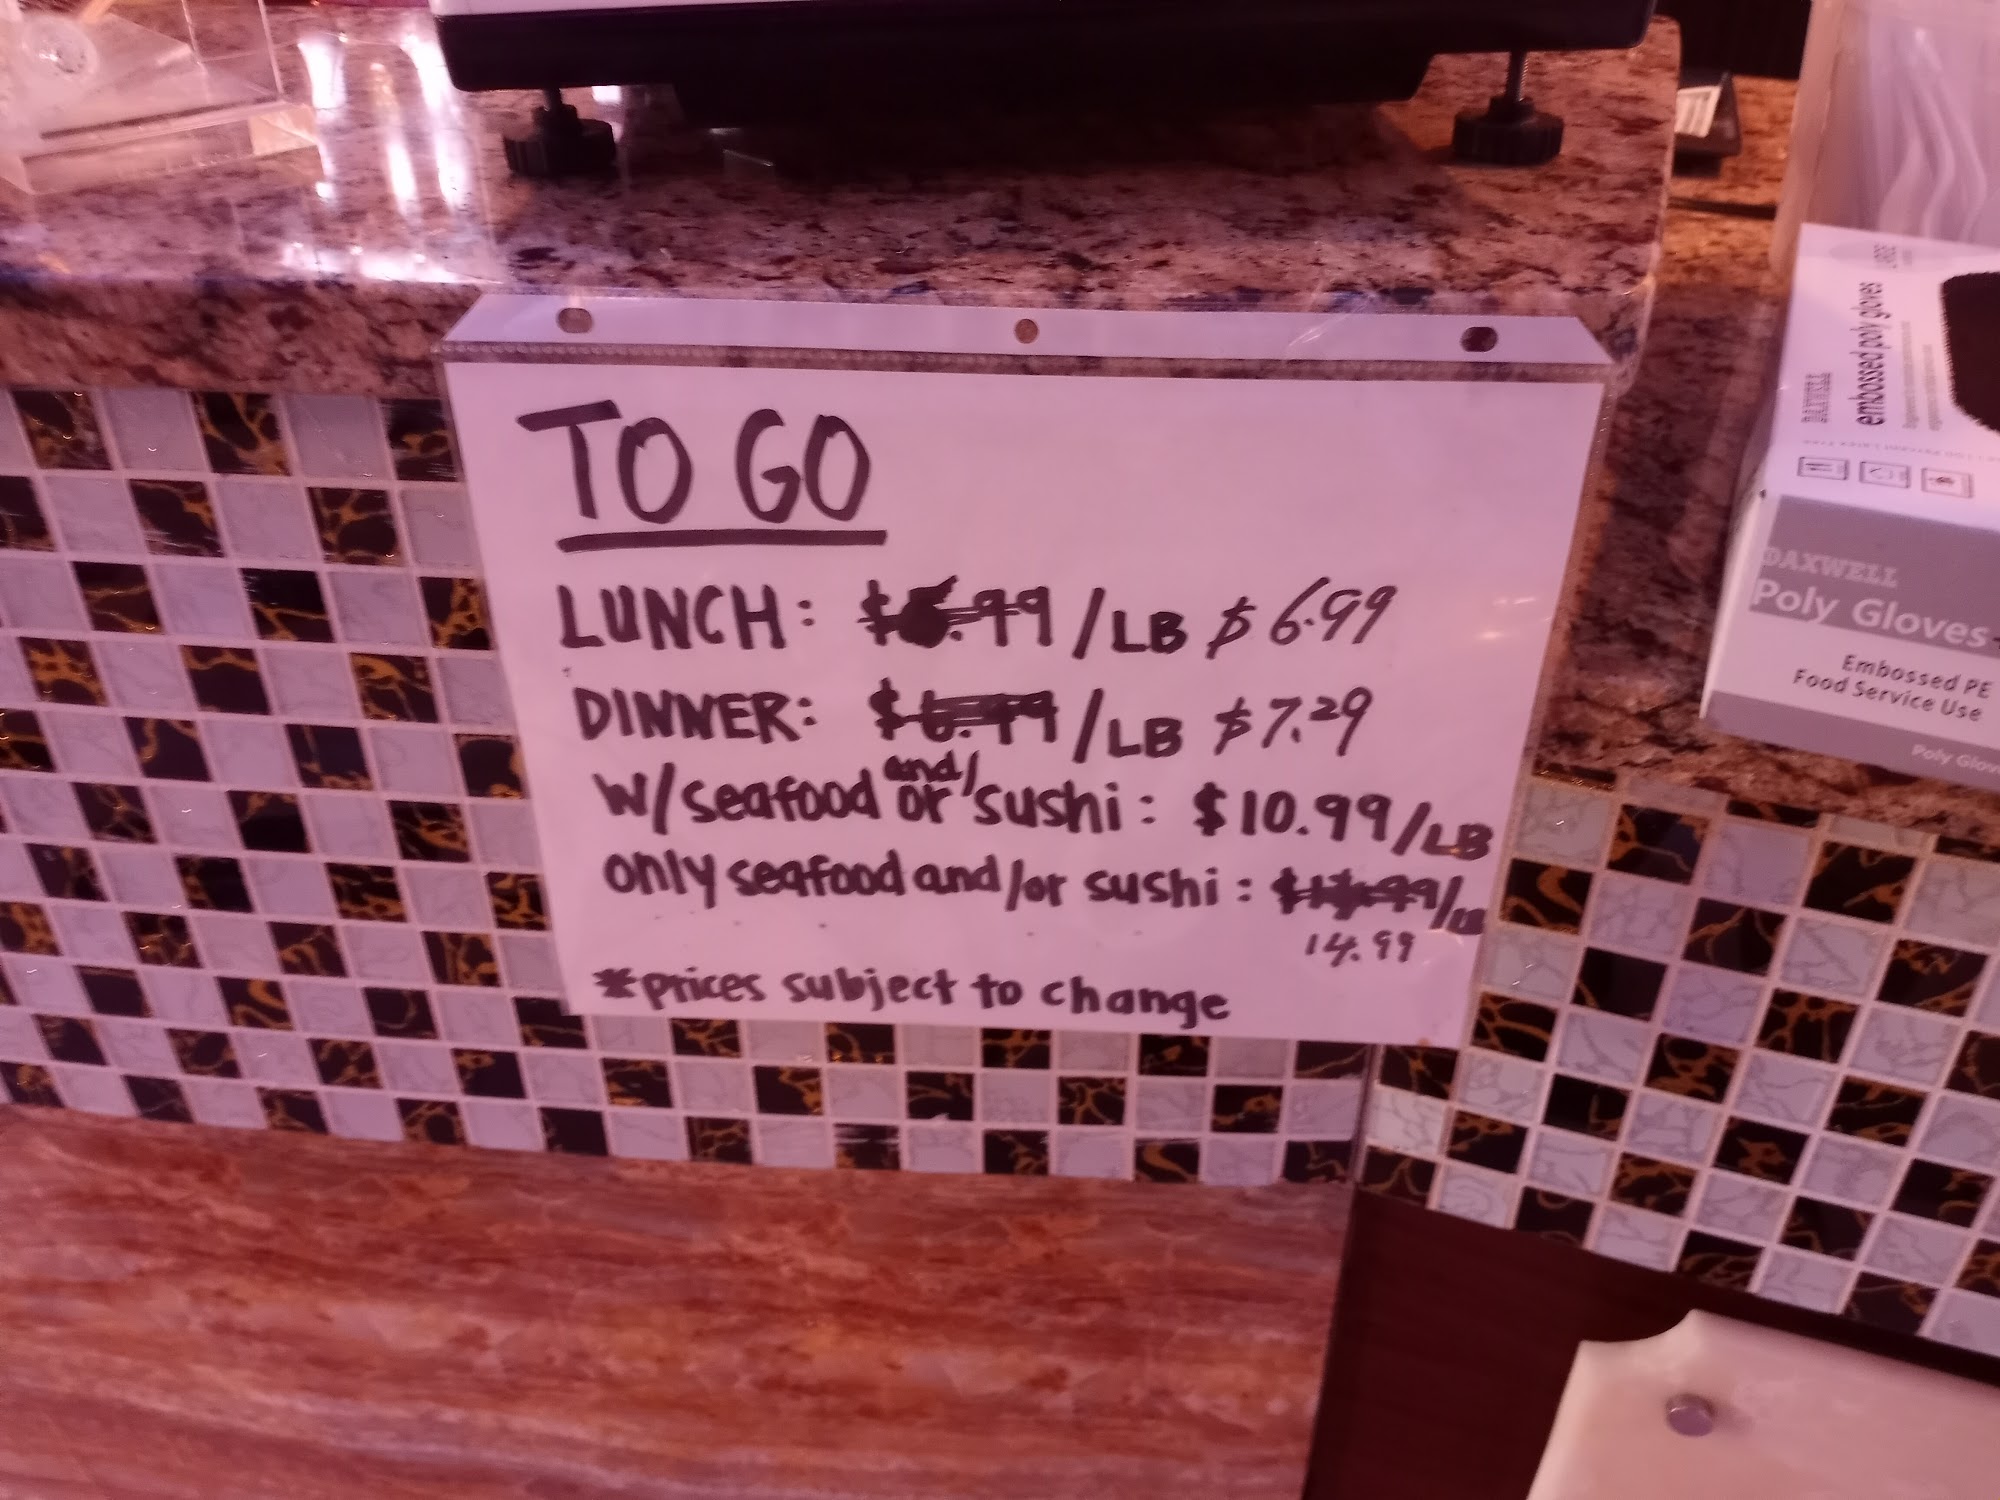 TO GO
LUNCH: /LB $6.99
DINNER: /LB $7.29
w/seafood and/or sushi: $10.99/LB
only seafood and/or sushi: /LB
14.99
*prices subject to change
DAXWELL
embossed poly gloves
DAXWELL
Poly Gloves
Embossed PE
Food Service Use